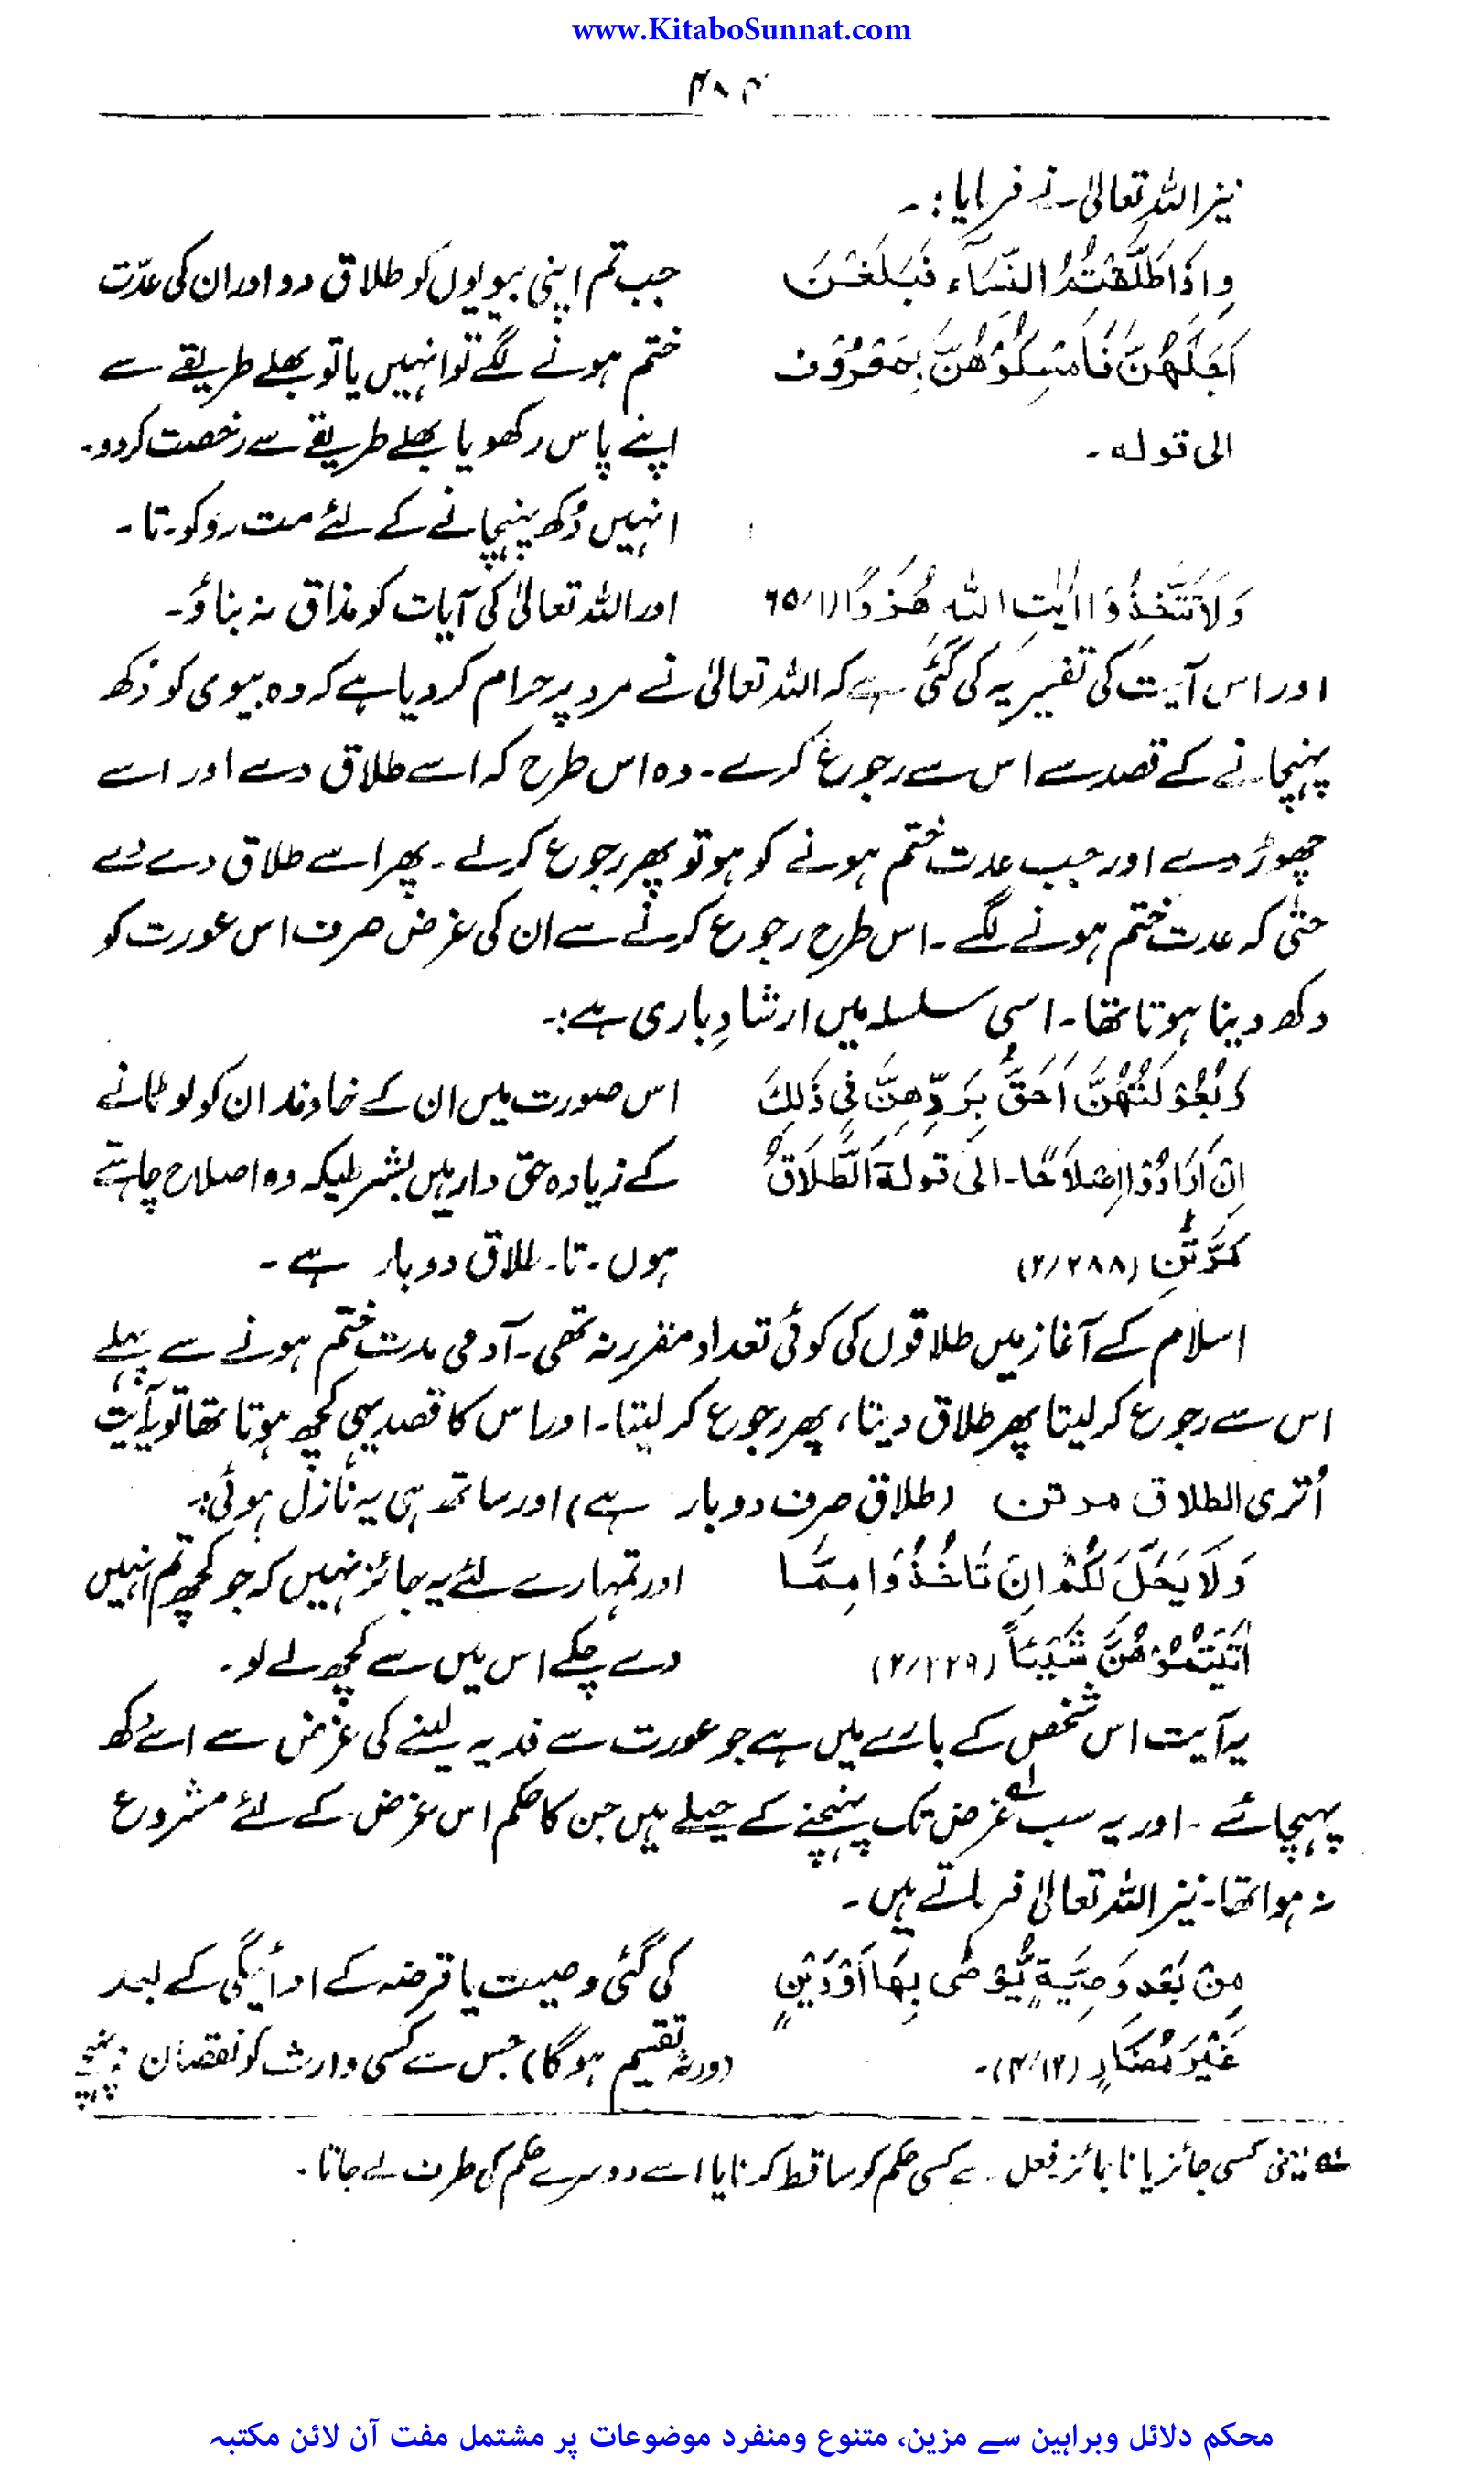 www.KitaboSunnat.com
۴۸۴
نیز اللہ تعالیٰ نے فرمایا :۔
وَاِذَا طَلَّقْتُمُ النِّسَآءَ فَبَلَغْنَ
جب تم اپنی بیویوں کو طلاق دو اور ان کی عدّت
اَجَلَهُنَّ فَاَمْسِكُوْهُنَّ بِمَعْرُوْفٍ
ختم ہونے لگے تو انہیں یا تو بھلے طریقے سے
الى قوله ۔
اپنے پاس رکھو یا بھلے طریقے سے رخصت کر دو۔
انہیں دُکھ پہنچانے کے لئے مت روکو۔ تا ۔
وَلَا تَتَّخِذُوْا اٰيٰتِ اللّٰهِ هُزُوًا (۶۵/۱)
اور اللہ تعالیٰ کی آیات کو مذاق نہ بناؤ۔
اور اس آیت کی تفسیر یہ کی گئی ہے کہ اللہ تعالیٰ نے مرد پر حرام کر دیا ہے کہ وہ بیوی کو دُکھ
پہنچانے کے قصد سے اس سے رجوع کرے۔ وہ اس طرح کہ اسے طلاق دے اور اسے
چھوڑ دے اور جب عدت ختم ہونے کو ہو تو پھر رجوع کرلے ۔ پھر اسے طلاق دے دے
حتٰی کہ عدت ختم ہونے لگے ۔ اس طرح رجوع کرنے سے ان کی غرض صرف اس عورت کو
دکھ دینا ہوتا تھا۔ اسی سلسلہ میں ارشادِ باری ہے:۔
وَبُعُوْلَتُهُنَّ اَحَقُّ بِرَدِّهِنَّ فِي ذٰلِكَ
اس صورت میں ان کے خاوند ان کو لوٹانے
اِنْ اَرَادُوْا اِصْلَاحًا۔ الىٰ قوله اَلطَّلَاقُ
کے زیادہ حق دار ہیں بشرطیکہ وہ اصلاح چاہتے
مَرَّتٰنِ (۲/۲۸۸)
ہوں ۔ تا۔ طلاق دو بار ہے ۔
اسلام کے آغاز میں طلاقوں کی کوئی تعداد مقرر نہ تھی۔ آدمی مدت ختم ہونے سے پہلے
اس سے رجوع کر لیتا پھر طلاق دیتا، پھر رجوع کر لیتا۔ اور اس کا قصد یہی کچھ ہوتا تھا تو یہ آیت
اُتری الطلاق مرتٰن (طلاق صرف دو بار ہے) اور ساتھ ہی یہ نازل ہوئی:۔
وَلَا يَحِلُّ لَكُمْ اَنْ تَاْخُذُوْا مِمَّا
اور تمہارے لئے یہ جائز نہیں کہ جو کچھ تم انہیں
اٰتَيْتُمُوْهُنَّ شَيْئًا (۲/۲۲۹)
دے چکے اس میں سے کچھ لے لو ۔
یہ آیت اس شخص کے بارے میں ہے جو عورت سے فدیہ لینے کی غرض سے اسے دُکھ
پہنچائے ۔ اور یہ سب غرض تک پہنچنے کے حیلے ہیں جن کا حکم اس غرض کے لئے مشروع
نہ ہوا تھا۔ نیز اللہ تعالیٰ فرماتے ہیں ۔
مِنْ بَعْدِ وَصِيَّةٍ يُّوْصٰى بِهَا اَوْ دَيْنٍ
کی گئی وصیت یا قرضہ کے ادائیگی کے بعد
غَيْرَ مُضَارٍّ (۴/۱۲)۔
(ورثہ تقسیم ہوگا) جس سے کسی وارث کو نقصان نہ پہنچے
لے یعنی کسی جائز یا ناجائز فعل سے کسی حکم کو ساقط کرنا یا اسے دوسرے حکم کی طرف لے جانا ۔
محکم دلائل وبراہین سے مزین، متنوع ومنفرد موضوعات پر مشتمل مفت آن لائن مکتبہ